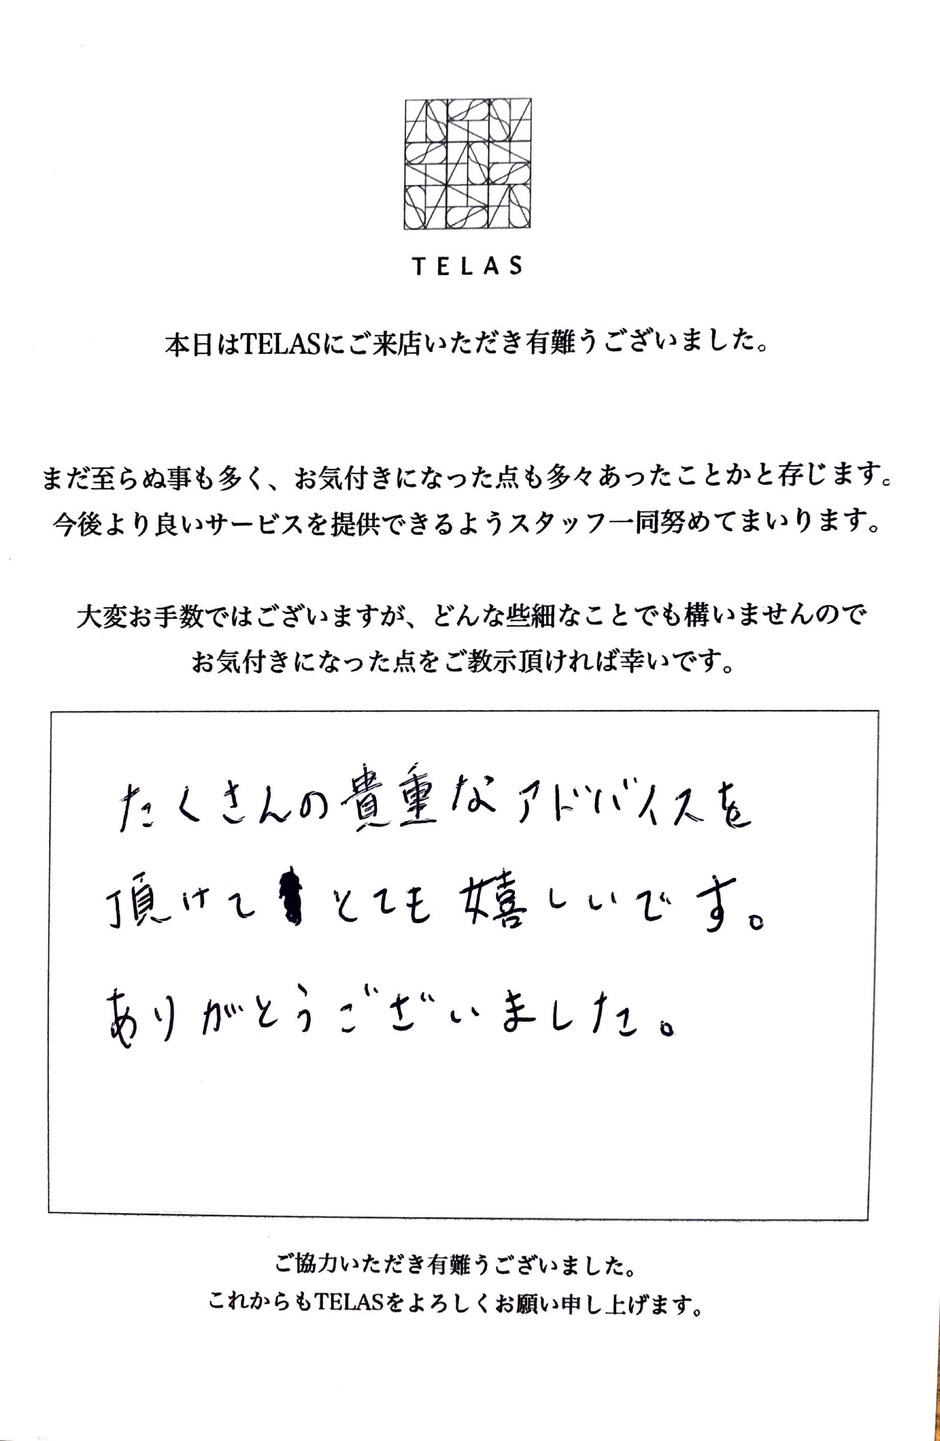 TELAS
本日はTELASにご来店いただき有難うございました。
まだ至らぬ事も多く、お気付きになった点も多々あったことかと存じます。
今後より良いサービスを提供できるようスタッフ一同努めてまいります。
大変お手数ではございますが、どんな些細なことでも構いませんので
お気付きになった点をご教示頂ければ幸いです。
たくさんの貴重なアドバイスを
頂けてとても嬉しいです。
ありがとうございました。
ご協力いただき有難うございました。
これからもTELASをよろしくお願い申し上げます。